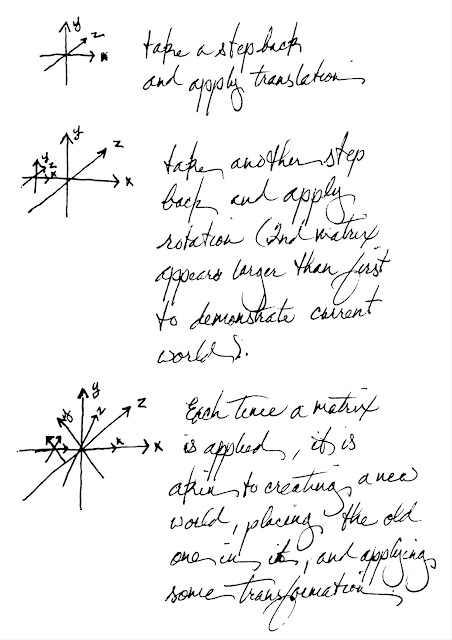 y
z
x
take a step back
and apply translation
y
z
x
y
z
x
take another step
back and apply
rotation (2nd matrix
appears larger than first
to demonstrate current
world).
y
z
x
y
z
x
Each time a matrix
is applied, it is
akin to creating a new
world, placing the old
one in it, and applying
some transformation.